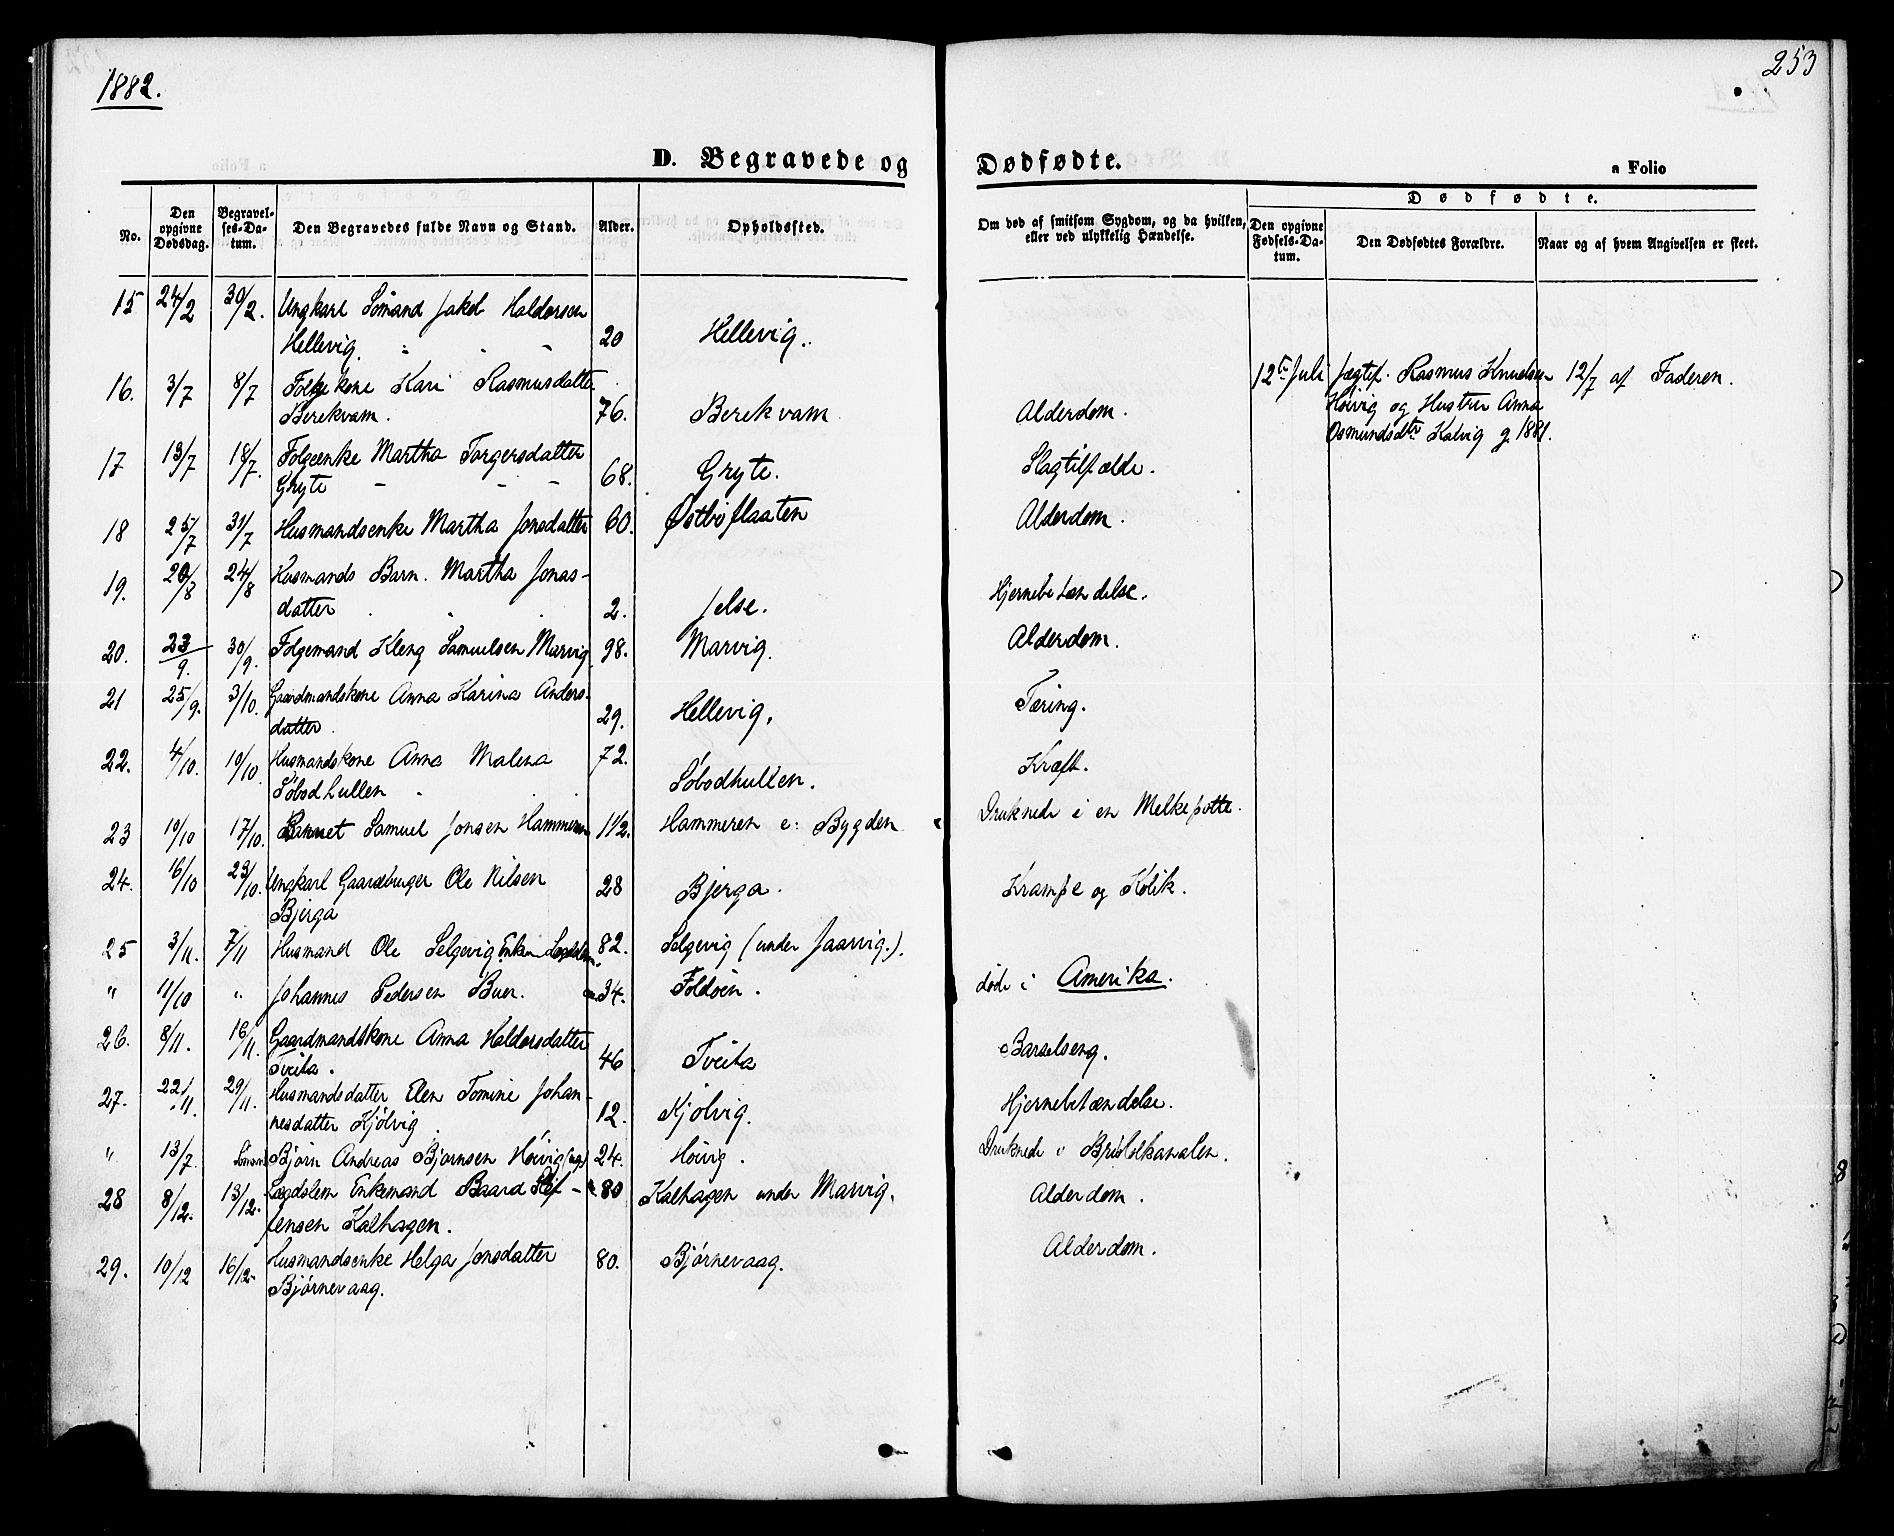 1882.
253
D. Begravede og Dødfødte.
a Folio
No.
Den opgivne Dødsdag.
Begravelses-Datum.
Den Begravedes fulde Navn og Stand.
Alder.
Opholdssted.
Om død af smitsom Sygdom, og da hvilken, eller ved ulykkelig Hændelse.
Dødfødte.
Den opgivne Fødsels-Datum.
Den Dødfødtes Forældre.
Naar og af hvem Angivelsen er skeet.
15 24/2 30/2. Ungkarl Sømand Jakob Haldorsen
Hellevig. 20 Hellevig.
12te Juli Jægtef. Rasmus Knudsen 12/7 af Faderen.
Høivig og Hustru Anna
Osmundsdtr Kalvig g. 1881.
16. 3/7 8/7 Folgekone Kari Rasmusdatter
Berekvam. 76. Berekvam Alderdom.
17 13/7 18/7. Folgeenke Martha Torgersdatter
Gryte 68. Gryte. Slagtilfælde.
18 25/7 31/7 Husmandsenke Martha Jonsdatter 60. Østbøflaaten Alderdom.
19. 20/8 24/8 Husmands Barn. Martha Jonas-
datter 2. Jelse. Hjernebetændelse.
20. 23/9. 30/9. Folgemand Kleng Samuelsen Marvig 98. Marvig. Alderdom.
21 25/9. 3/10. Gaardmandskone Anna Karina Anders-
datter. 29. Hellevig. Tæring.
22. 4/10. 10/10. Husmandskone Anna Malena 72.
Søbodhullen Søbodhullen. Kræft.
23 10/10 17/10. Samuel Jonsen Hammeren 1 1/2. Hammeren i Bygden Druknede i en Melkepotte.
24. 16/10 23/10. Ungkarl Gaardbruger Ole Nilsen 28 Bjerga. Krampe og Kolik.
Bjerga
25 3/11. 7/11 Husmand Ole Selgevig Enkem Lægdslem. 82. Selgevig (under Jaarvig.).
" 11/10 " Johannes Pedersen Buer. 34. Foldøen. døde i Amerika.
26. 8/11. 16/11. Gaardmandskone Anna Haldorsdatter
Tveita. 46 Tveita Barselseng.
27. 22/11. 29/11. Husmandsdatter Elen Tomine Johan-
nesdatter Kjølvig 12. Kjølvig. Hjernebetændelse.
" 13/7. Bjørn Andreas Bjørnsen Høivig 24. Høivig. Druknede i Bristolkanalen.
28 8/12. 13/12. Lægdslem Enkemand Baard 80 Kalhagen under Marvig. Alderdom.
Kalhagen.
29. 10/12 16/12. Husmandsenke Helga Jonsdatter 80. Bjørnevaag. Alderdom.
Bjørnevaag.